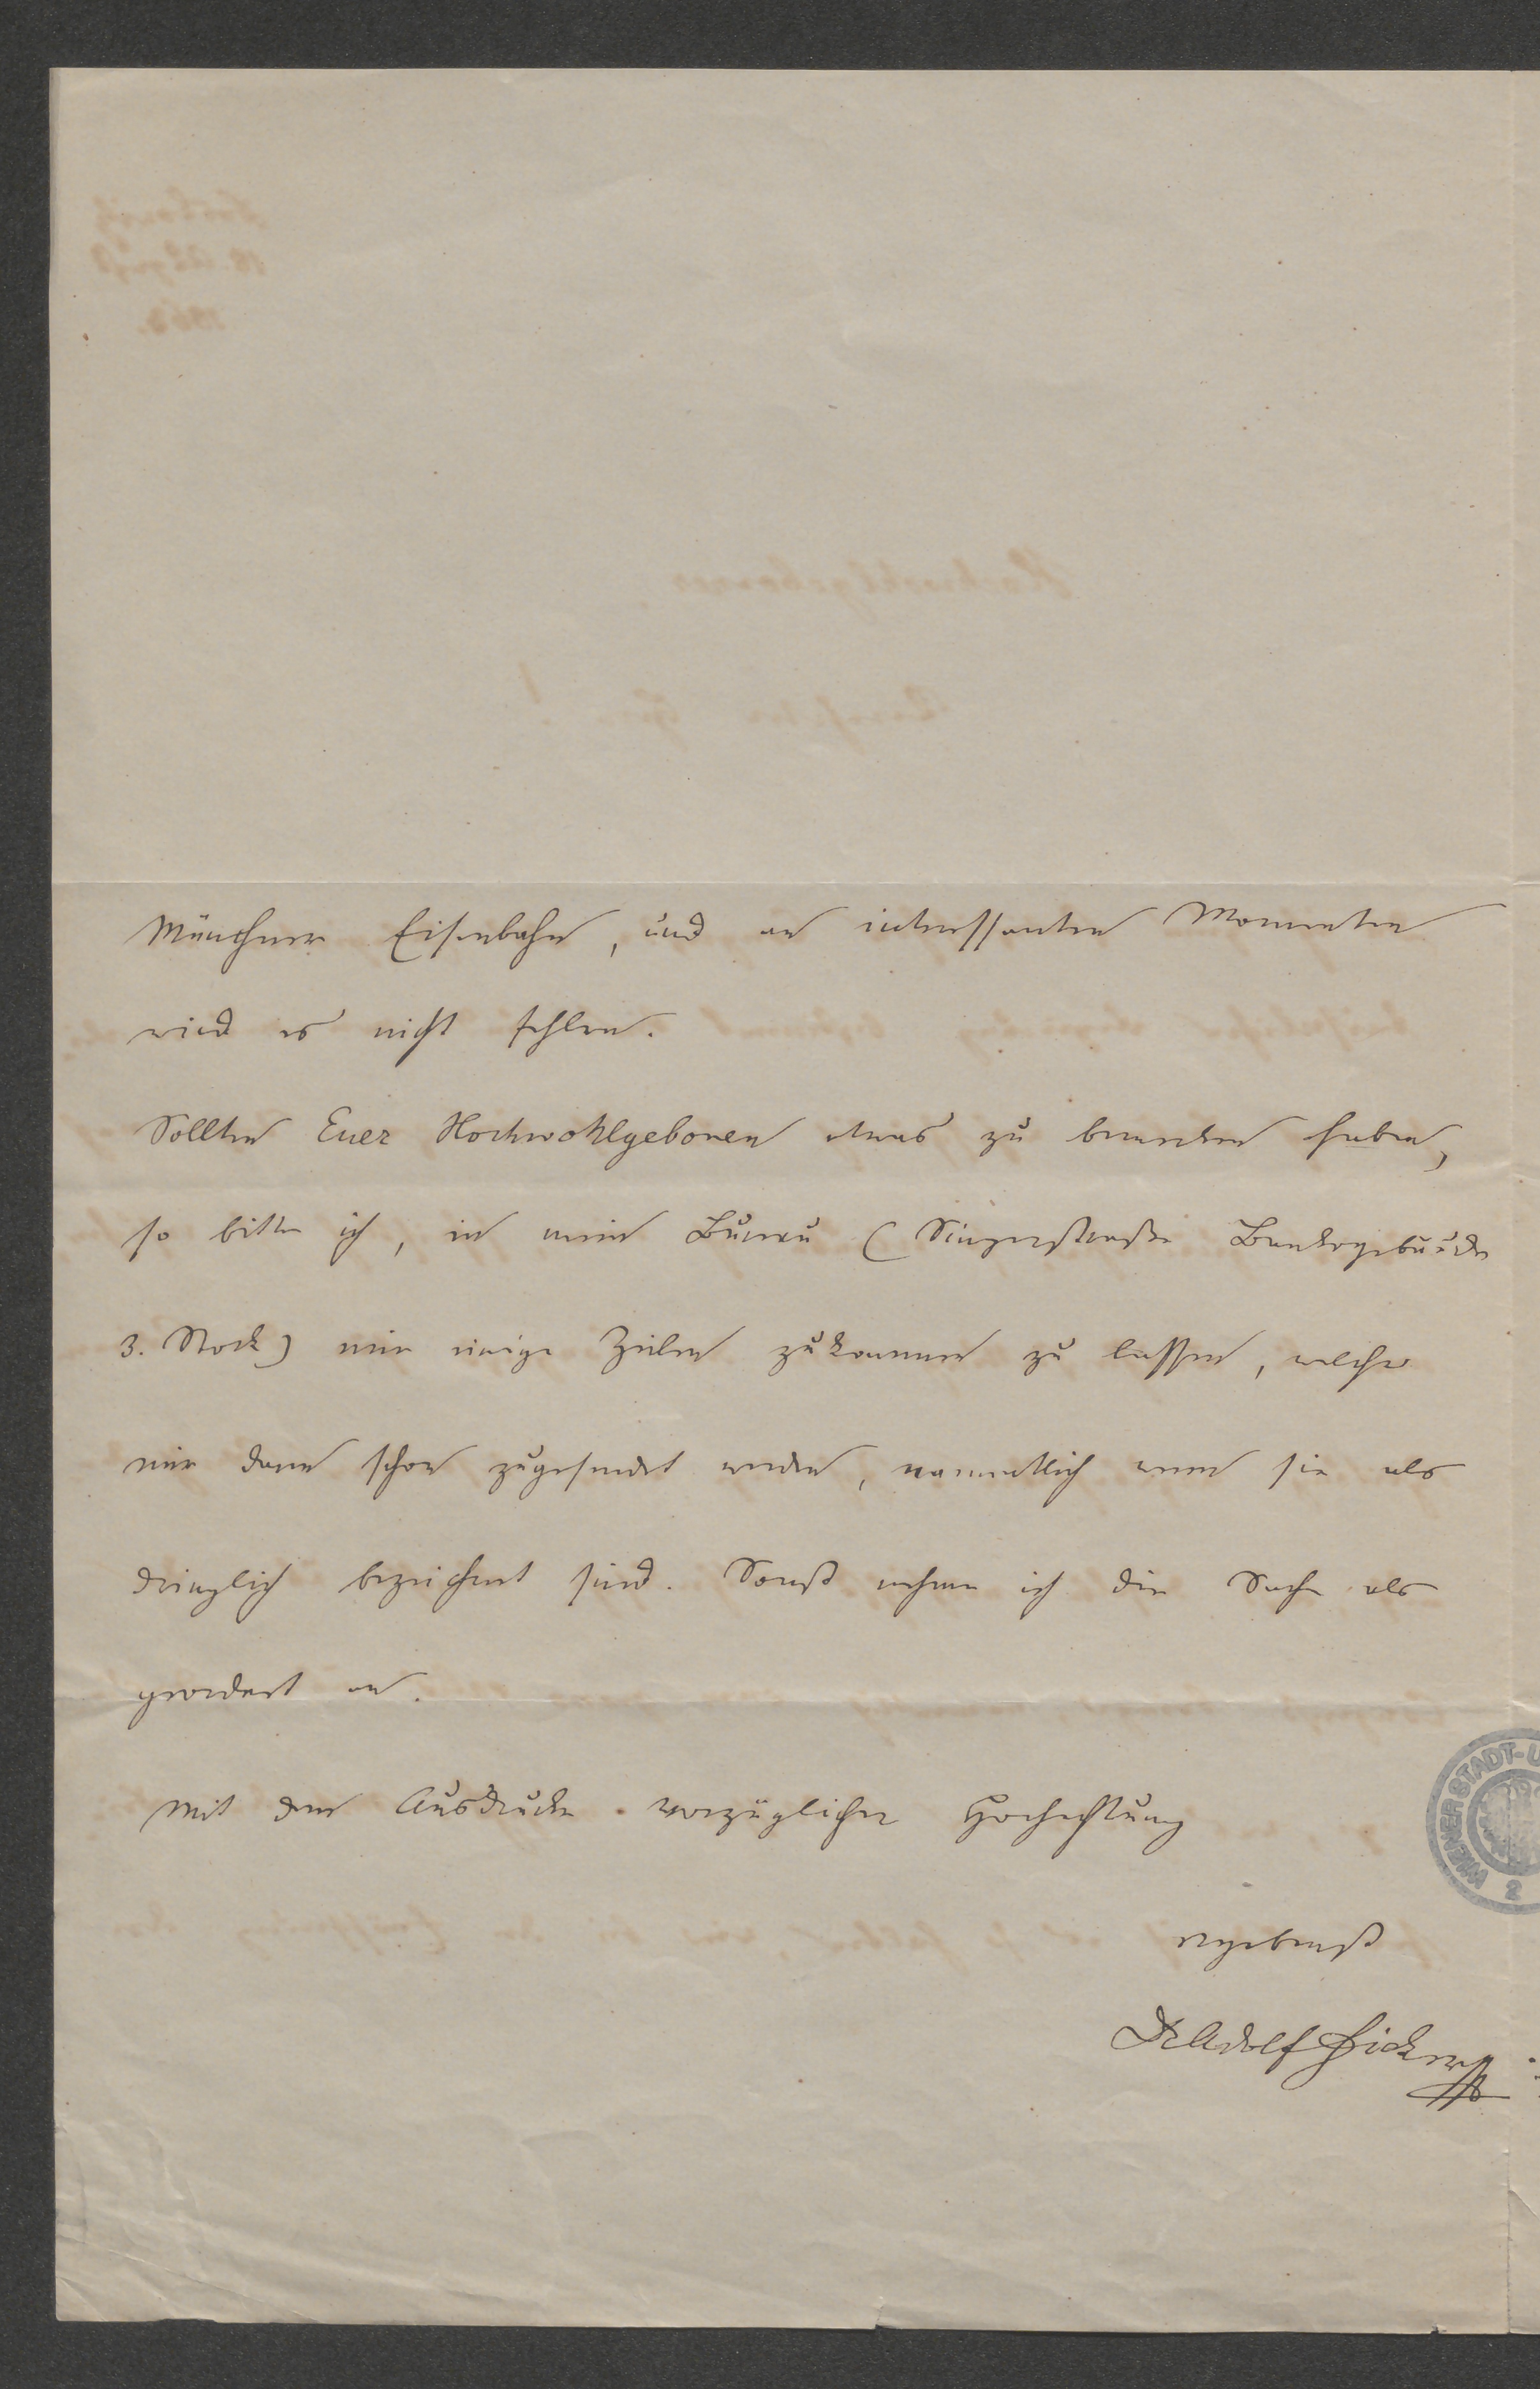 Münchner Eisenbahn, und an interessanten Momenten
wird es nicht fehlen.
Sollten Euer Hochwohlgeboren etwas zu bemerken haben,
so bitte ich, in mein Bureau (Singerstraße Bankogebäude
3. Stock) mir einige Zeilen zukommen zu lassen, welche
mir dann schon zugesendet werden, namentlich wenn sie als
dringlich bezeichnet sind. Sonst nehme ich die Sache als
geordnet an.
Mit dem Ausdrucke vorzüglicher Hochachtung
ergebenst
Dr Adolf Ficker
WIENER STADT-U
2